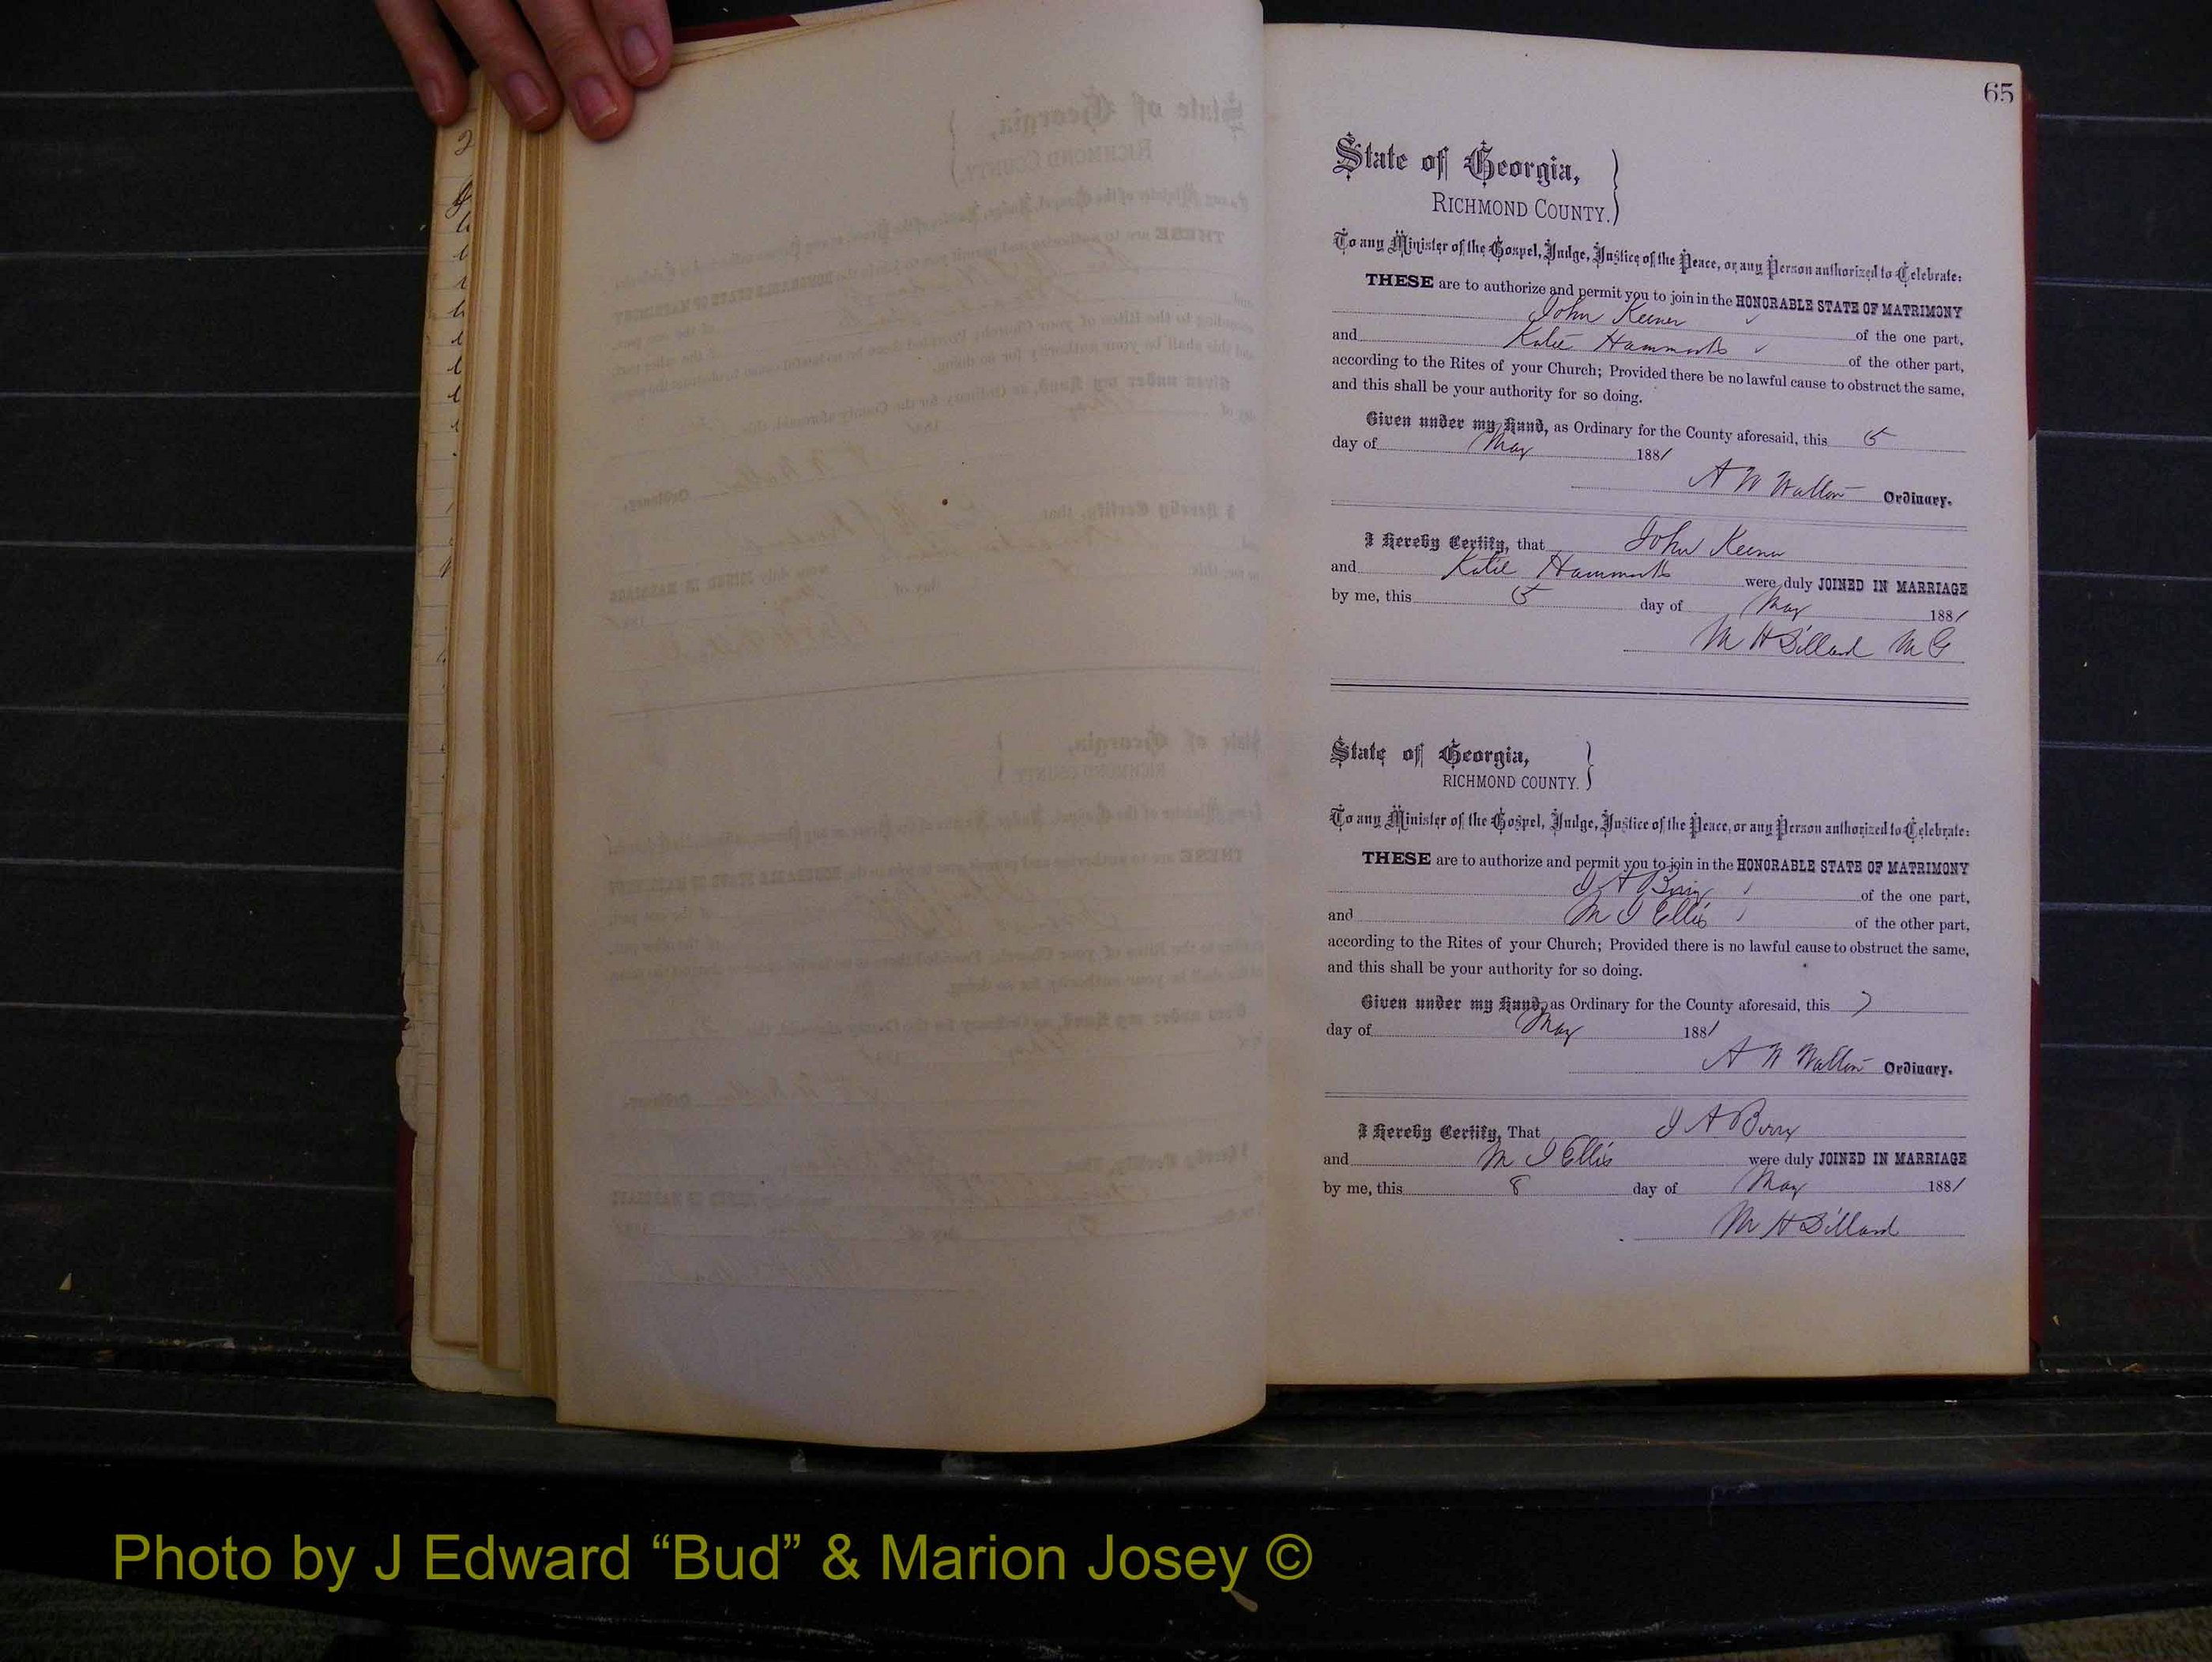 65
State of Georgia,
RICHMOND COUNTY.
To any Minister of the Gospel, Judge, Justice of the Peace, or any Person authorized to Celebrate:
THESE are to authorize and permit you to join in the HONORABLE STATE OF MATRIMONY
John Keener of the one part,
and Katie Hammocks of the other part,
according to the Rites of your Church; Provided there be no lawful cause to obstruct the same,
and this shall be your authority for so doing.
Given under my Hand, as Ordinary for the County aforesaid, this 5
day of May 1881
A W Walton Ordinary.
I Hereby Certify, that John Keener
and Katie Hammocks were duly JOINED IN MARRIAGE
by me, this 5 day of May 1881
M H Dillard M G
State of Georgia,
RICHMOND COUNTY.
To any Minister of the Gospel, Judge, Justice of the Peace, or any Person authorized to Celebrate:
THESE are to authorize and permit you to join in the HONORABLE STATE OF MATRIMONY
J A Berry of the one part,
and M J Ellis of the other part,
according to the Rites of your Church; Provided there is no lawful cause to obstruct the same,
and this shall be your authority for so doing.
Given under my Hand, as Ordinary for the County aforesaid, this 7
day of May 1881
A W Walton Ordinary.
I Hereby Certify, That J A Berry
and M J Ellis were duly JOINED IN MARRIAGE
by me, this 8 day of May 1881
M H Dillard
Photo by J Edward “Bud” & Marion Josey ©